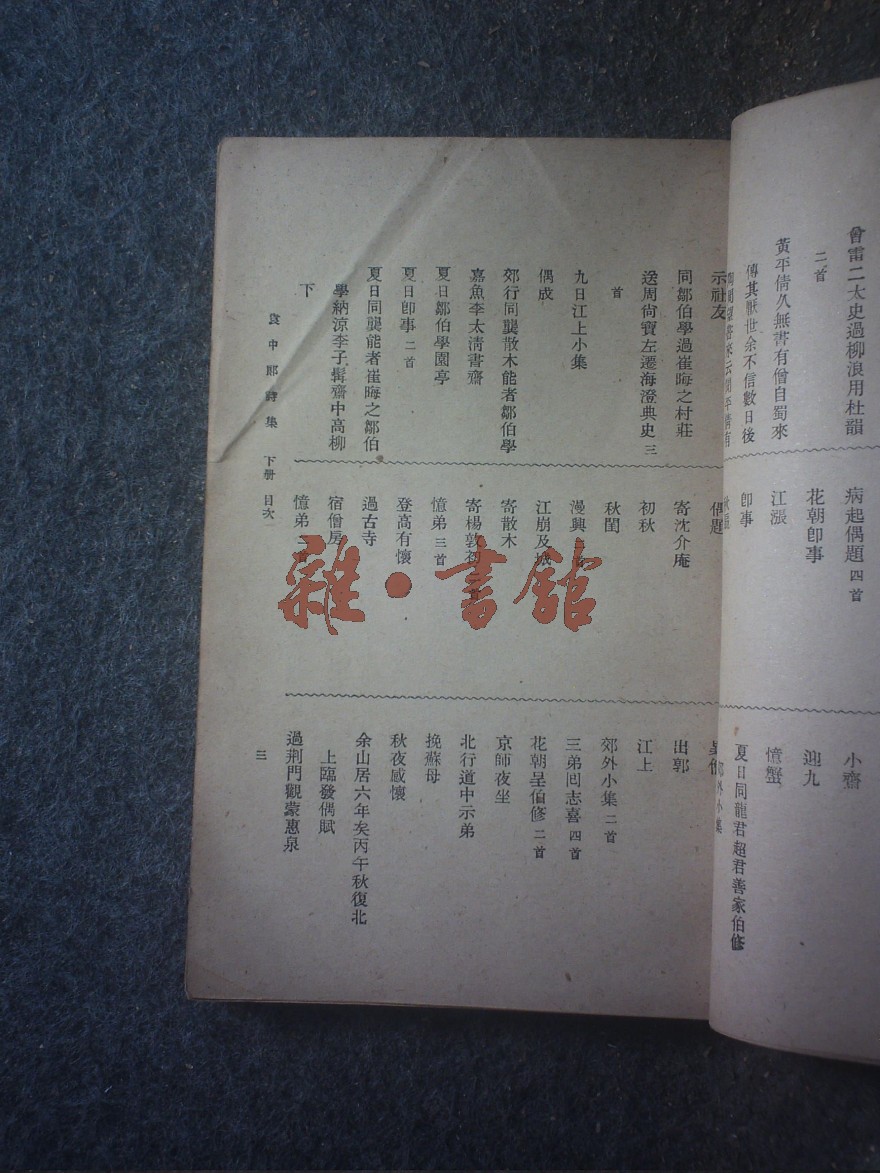 曾雷二太史過柳浪用杜韻
二首
黃平倩久無書有僧自蜀來
傳其厭世余不信數日後
病起偶題 四首
花朝卽事
江漲
卽事
小齋
迎九
憶蟹
夏日同龍君超君善家伯修
郊外小集
示社友
同鄒伯學過崔晦之村莊
送周尙寶左遷海澄典史 三
首
九日江上小集
偶成
郊行同龔散木能者鄒伯學
嘉魚李太淸書齋
夏日鄒伯學園亭
夏日卽事 二首
夏日同龔能者崔晦之鄒伯
學納涼李子髯齋中高柳
下
偶題
寄沈介庵
初秋
秋閨
漫興 首
江崩及城
寄散木
寄楊敦初
憶弟 三首
登高有懷
過古寺
宿僧房
憶弟 首
出郭
江上
郊外小集 二首
三弟囘志喜 四首
花朝呈伯修 二首
京師夜坐
北行道中示弟
挽蘇母
秋夜感懷
余山居六年矣丙午秋復北
上臨發偶賦
過荆門觀蒙惠泉
袁中郞詩集 下册 目次
三
雜·書館